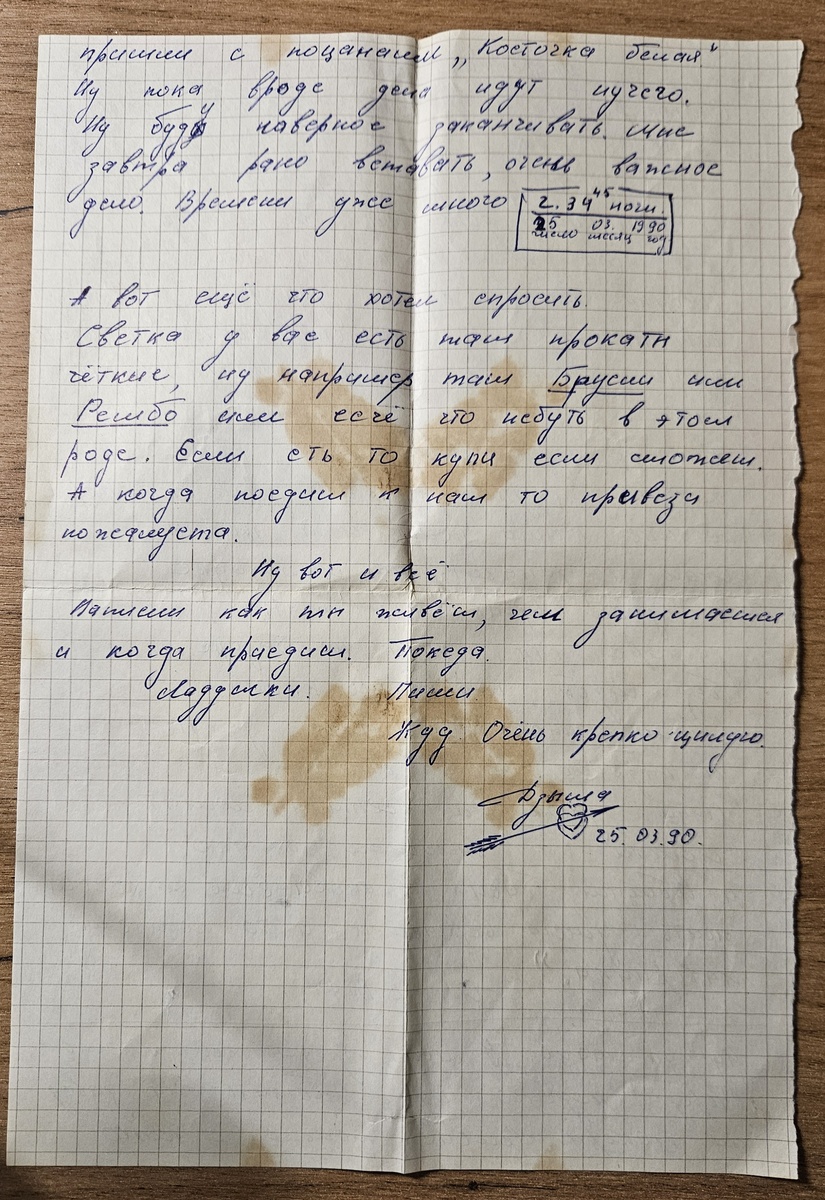 пришли с поцанами „Косточка белая"
Ну пока вроде дела идут нучего.
Ну буду наверное заканчивать. Мне
завтра рано вставать, очень важное
дело. Времени уже много 2.34⁴⁵ ночи.
25 03. 1990
число месяц год
А вот ещё что хотел спросить.
Светка у вас есть там
чёткие, ну например там Брусли или
Рембо или есчё что небуть в этом
роде. Если сть то купи если сможеш.
А когда поедиш к нам то привези
пожалуста.
Ну вот и всё
Напиши как ты живёш, чем занимаешся
и когда приедиш. Покеда.
Ладушки. Пиши
Жду Очень крепко цилую.
Дзыма
25.03.90.